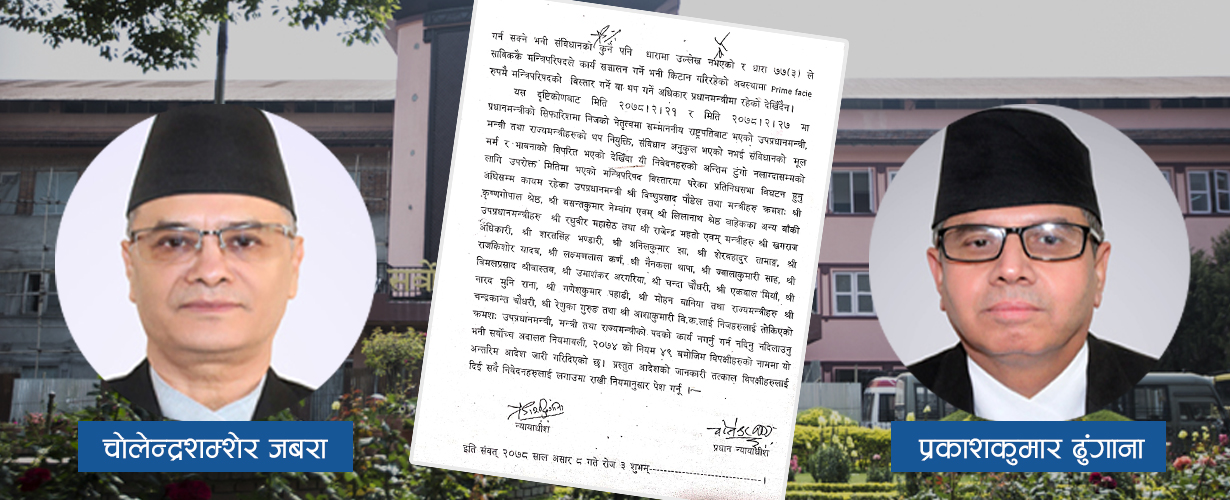 गर्न सक्ने भनी संविधानको कुनै पनि धारामा उल्लेख नभएको र धारा ७७(३) ले
साबिककै मन्त्रिपरिषदले कार्य सञ्चालन गर्ने भनी किटान गरिरहेको अवस्थामा Prime facie
रुपमै मन्त्रिपरिषदको बिस्तार गर्ने वा थप गर्ने अधिकार प्रधानमन्त्रीमा रहेको देखिँदैन।
यस दृष्टिकोणबाट मिति २०७८।२।२१ र मिति २०७८।२।२७ मा
प्रधानमन्त्रीको सिफारिशमा निजको नेतृत्वमा सम्माननीय राष्ट्रपतिबाट भएको उपप्रधानमन्त्री,
मन्त्री तथा राज्यमन्त्रीहरुको थप नियुक्ति, संविधान अनुकुल भएको नभई संविधानको मूल
मर्म र भावनाको विपरित भएको देखिँदा यी निवेदनहरुको अन्तिम टुंगो नलाग्दासम्मको
लागि उपरोक्त मितिमा भएको मन्त्रिपरिषद बिस्तारमा परेका प्रतिनिधिसभा विघटन हुनु
अघिसम्म कायम रहेका उपप्रधानमन्त्री श्री विष्णुप्रसाद पौडेल तथा मन्त्रीहरु क्रमशः श्री
कृष्णगोपाल श्रेष्ठ, श्री बसन्तकुमार नेम्वांग एवम् श्री लिलानाथ श्रेष्ठ वाहेकका अन्य बाँकी
उपप्रधानमन्त्रीहरु श्री रघुबीर महासेठ तथा श्री राजेन्द्र महतो एवम् मन्त्रीहरु श्री खगराज
अधिकारी, श्री शरतसिंह भण्डारी, श्री अनिलकुमार झा, श्री शेरबहादुर तामाङ, श्री
राजकिशोर यादव, श्री लक्ष्मणलाल कर्ण, श्री नैनकला थापा, श्री ज्वालाकुमारी साह, श्री
बिमलप्रसाद श्रीवास्तव, श्री उमाशंकर अरगरिया, श्री चन्दा चौधरी, श्री एकवाल मियाँ, श्री
नारद मुनि राना, श्री गणेशकुमार पहाडी, श्री मोहन बानिया तथा राज्यमन्त्रीहरु श्री
चन्द्रकान्त चौधरी, श्री रेणुका गुरुङ तथा श्री आशाकुमारी बि.क.लाई निजहरुलाई तोकिएको
क्रमशः उपप्रधानमन्त्री, मन्त्री तथा राज्यमन्त्रीको पदको कार्य नगर्नु गर्न नदिनु नदिलाउनु
भनी सर्वोच्च अदालत नियमावली, २०७४ को नियम ४९ बमोजिम विपक्षीहरुको नाममा यो
अन्तरिम आदेश जारी गरिदिएको छ। प्रस्तुत आदेशको जानकारी तत्काल विपक्षीहरुलाई
दिई सबै निवेदनहरुलाई लगाउमा राखी नियमानुसार पेश गर्नू ।
न्यायाधीश
प्रधान न्यायाधीश
इति संवत् २०७८ साल असार ८ गते रोज ३ शुभम्------------------------।
चोलेन्द्रशम्शेर जबरा
प्रकाशकुमार ढुंगाना